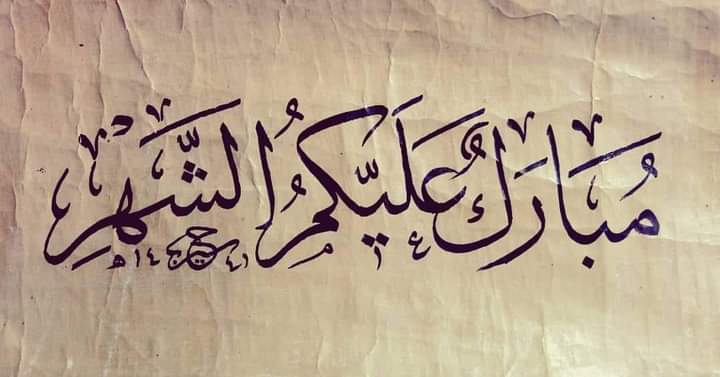 مُبَارَكٌ عَلَيْكُمُ الشَّهْرِ